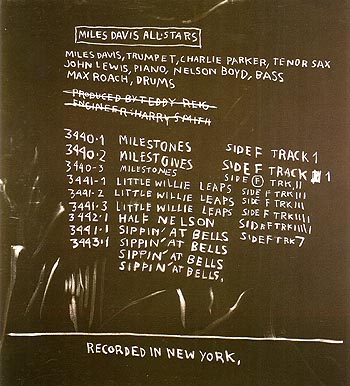 MILES DAVIS ALL★STARS
MILES DAVIS, TRUMPET, CHARLIE PARKER, TENOR SAX
JOHN LEWIS, PIANO, NELSON BOYD, BASS
MAX ROACH, DRUMS
PRODUCED BY TEDDY REIG
ENGINEER: HARRY SMITH
3440·1 MILESTONES SIDE F TRACK 1
3440·2 MILESTONES SIDE F TRACK 1
3440-3 MILESTONES SIDE F TRK II
3441-1 LITTLE WILLIE LEAPS SIDE F TRK III
3441·2 LITTLE WILLIE LEAPS SIDE F TRKIII
3441·3 LITTLE WILLIE LEAPS SIDE F TRKIIII
3442·1 HALF NELSON SIDEFTRKIIII
3441·1 SIPPIN' AT BELLS SIDEFTRK7
3443·1 SIPPIN' AT BELLS
SIPPIN' AT BELLS
SIPPIN' AT BELLS,
RECORDED IN NEW YORK,